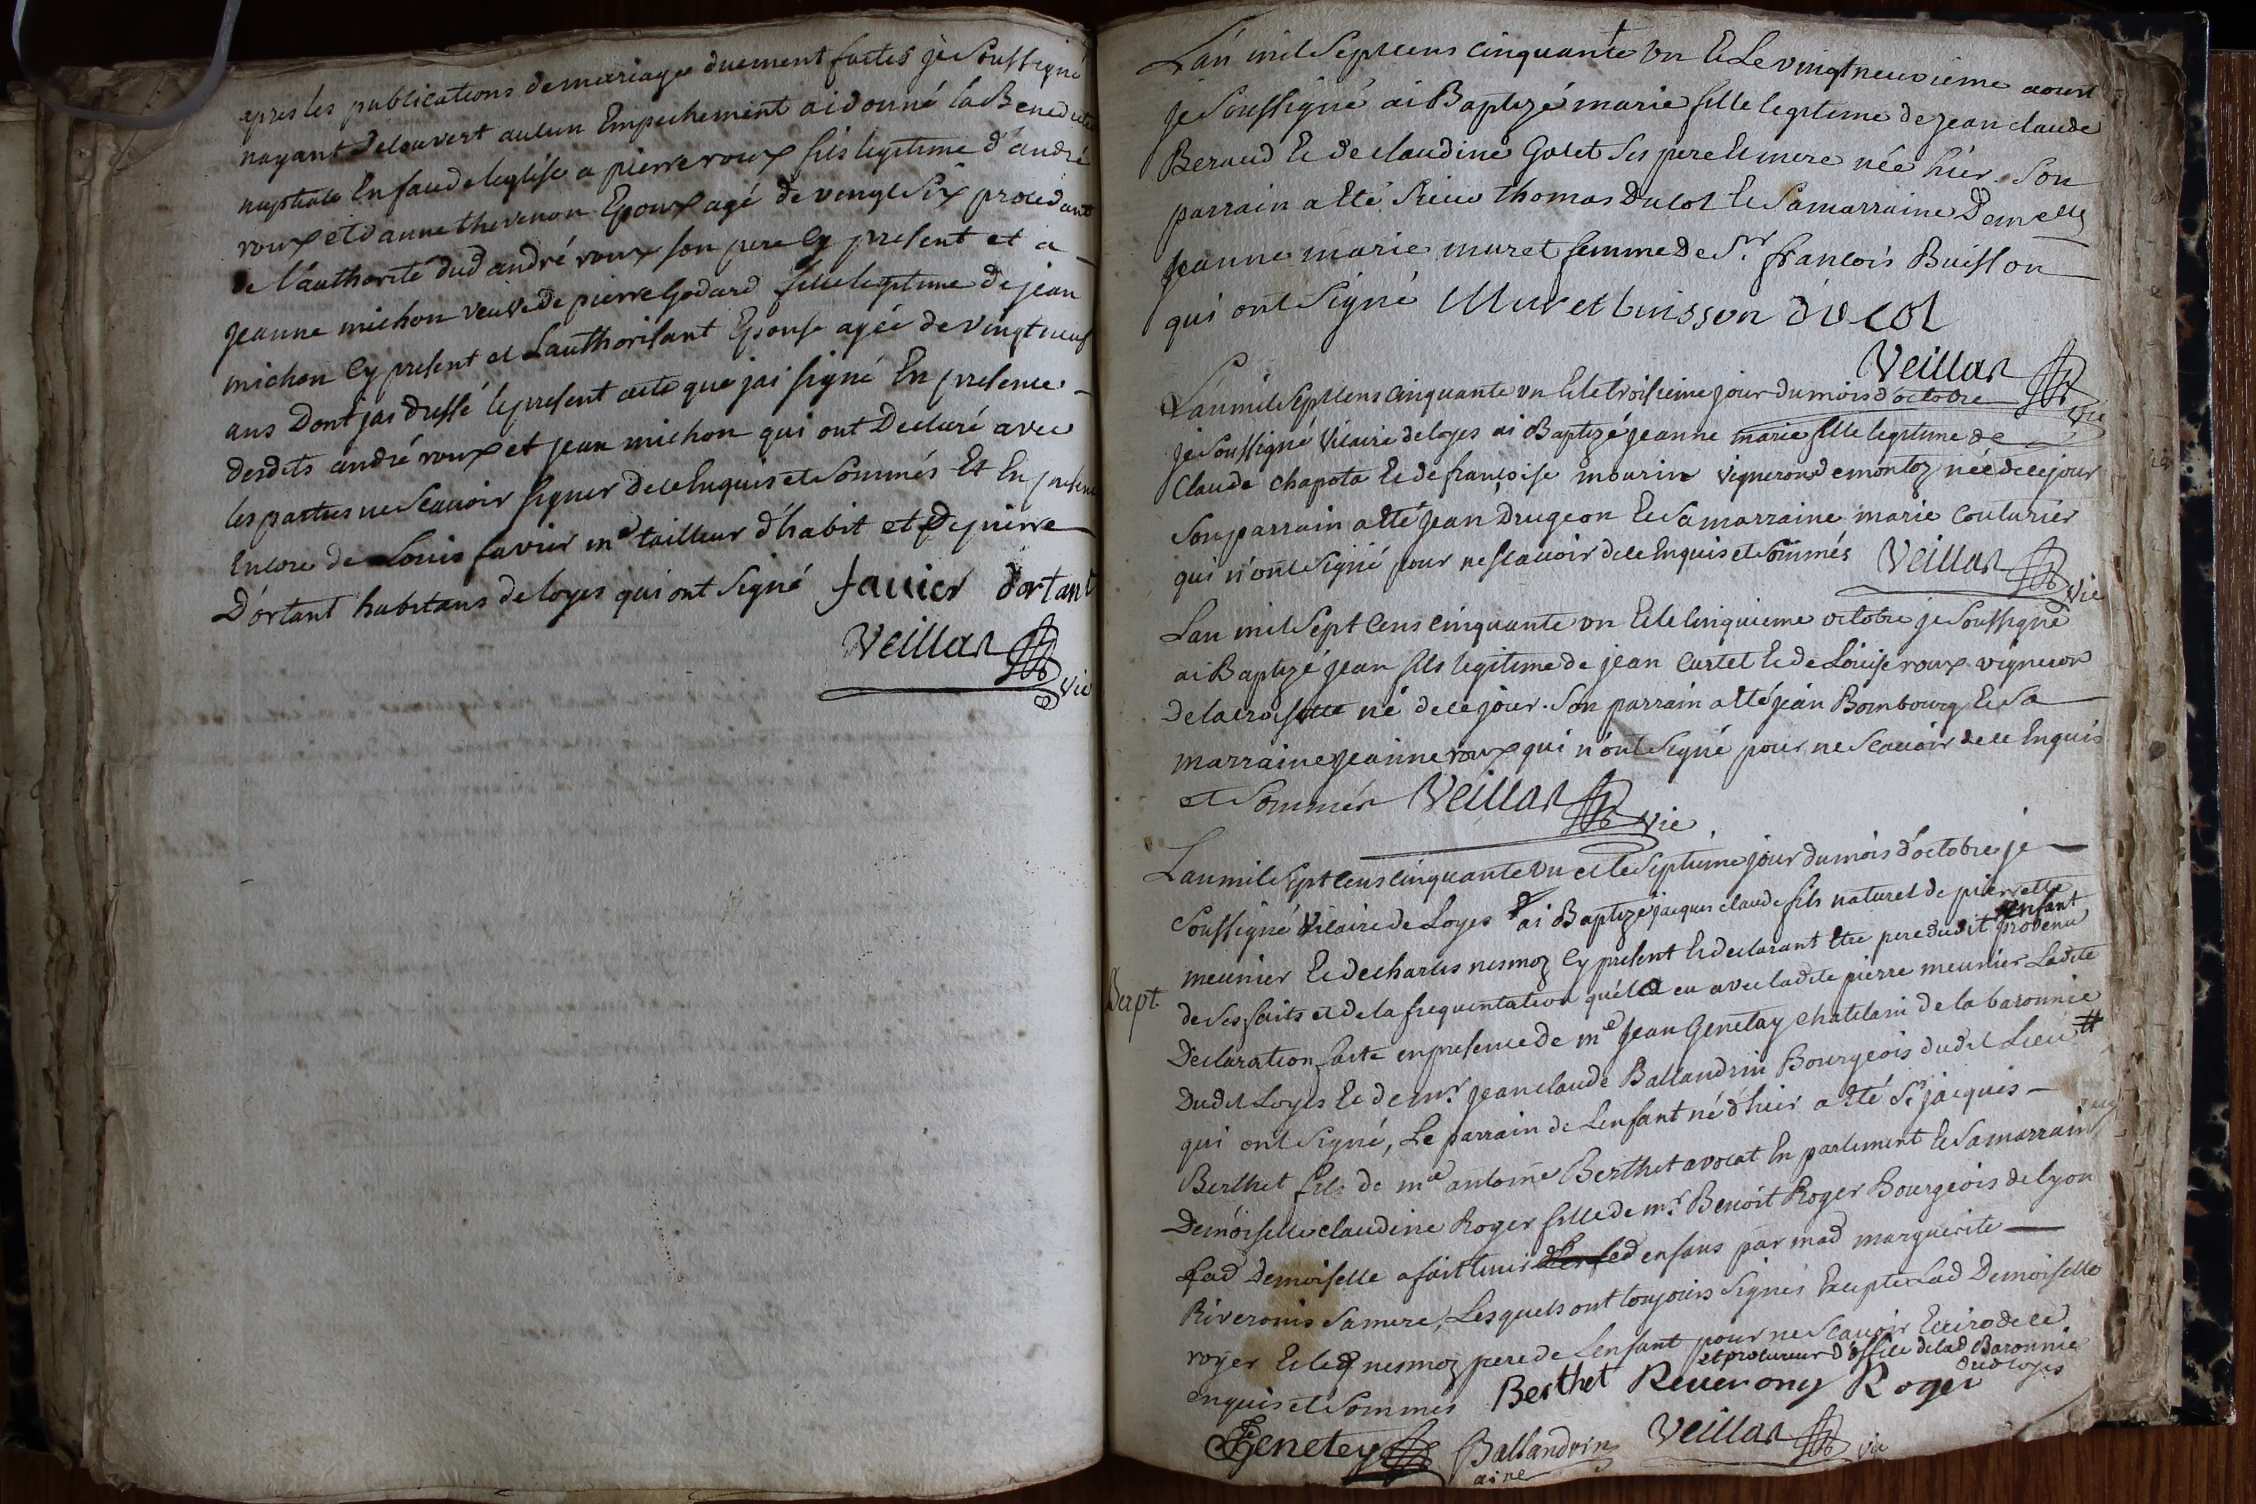 apres les publications de mariage duement faites je soussigné
nayant decouvert aucun Empechement ai donné la Benedictn
nuptiale En face de leglise a pierre roux fils legitime d'andré
roux et danne thevenon Epoux agé de vingt six procedant
de l'authorité dud andré roux son pere Cy present et a
Jeanne michon veuve de pierre Godard fille legitime de jean
michon Cy present et Lauthorisant Epouse agée de vingt neuf
ans Dont jai dressé le present acte que jai signé En presence
desdits andré roux et jean michon qui ont Declaré avec
les parties ne Scavoir signer de ce Enquis et Sommés Et En presence
Encore de Louis favier me tailleur d'habit et de pierre
D'ortant habitans de loyes qui ont signé favier dortant
Veillas vic
L'an mil Sept Cens Cinquante Un Et Le vingt neuvieme aoust
je Soussigné ai Baptizé marie fille legitime de jean claude
Beraud Et de claudine Golet Ses pere Et mere née hier. Son
parrain a Eté Sieur thomas Dulot Et Sa marraine Demelle
Jeanne marie muret femme de Sr. françois Buisson
qui ont Signé Muret buisson dulot
Veillas vic
L'an mil Sept Cens Cinquante un Et le troisieme jour du mois d'octobre
je Soussigné Vicaire de loyes ai Baptizé jeanne marie fille legitime de
Claude chapota Et de françoise mourin vigneron de montoz née de ce jour
Son parrain a Eté Jean Drugeon Et Sa marraine marie Couturier
qui n'ont Signé pour ne Scavoir de ce Enquis et Sommés Veillas vic
L'an mil Sept Cens Cinquante un Et le Cinquieme octobre je Soussigné
ai Baptizé jean fils legitime de jean Cartet Et de Louise roux vigneron
de la croisette né de ce jour. Son parrain a Eté jean Bombourg Et Sa
marraine jeanne roux qui n'ont Signé pour ne Scavoir de ce Enquis
et Sommés Veillas vic
L'an mil Sept Cens Cinquante Un et le Septieme jour du mois d'octobre je
Soussigné Vicaire de Loyes ai Baptizé jacques claude fils naturel de pierrette
meunier Et de charles nesmoz Cy present Et declarant Etre pere dudit enfant provenu
Bapt.
de Ses faits et de la frequentation quil a eu avec ladite pierre meunier Ladite
Declaration faite en presence de me Jean Genetay chatelain de la baronnie
Dudit Loyes Et de mr. Jean claude Ballandrin Bourgeois dudit Lieu #
qui ont Signé, Le parrain de Lenfant né d'hier a Eté Sr jacques
Berthet fils de me antoine Berthet avocat En parlement Et Sa marraine
Demoiselle claudine Roger fille de mr. Benoit Roger Bourgeois de lyon
Lad Demoiselle a fait tenir led enfans par mad marguerite
Riveronis Sa mere, Lesquels ont toujours Signés Excepté Lad Demoiselle
royer Et led nesmoz pere de Lenfant pour ne Scavoir Ecrire de ce
enquis et Sommés
# et procureur d'office de lad Baronnie dud loyes
Berthet Reuerony Roger
Genetey Ballandrin Veillas vic
ainé